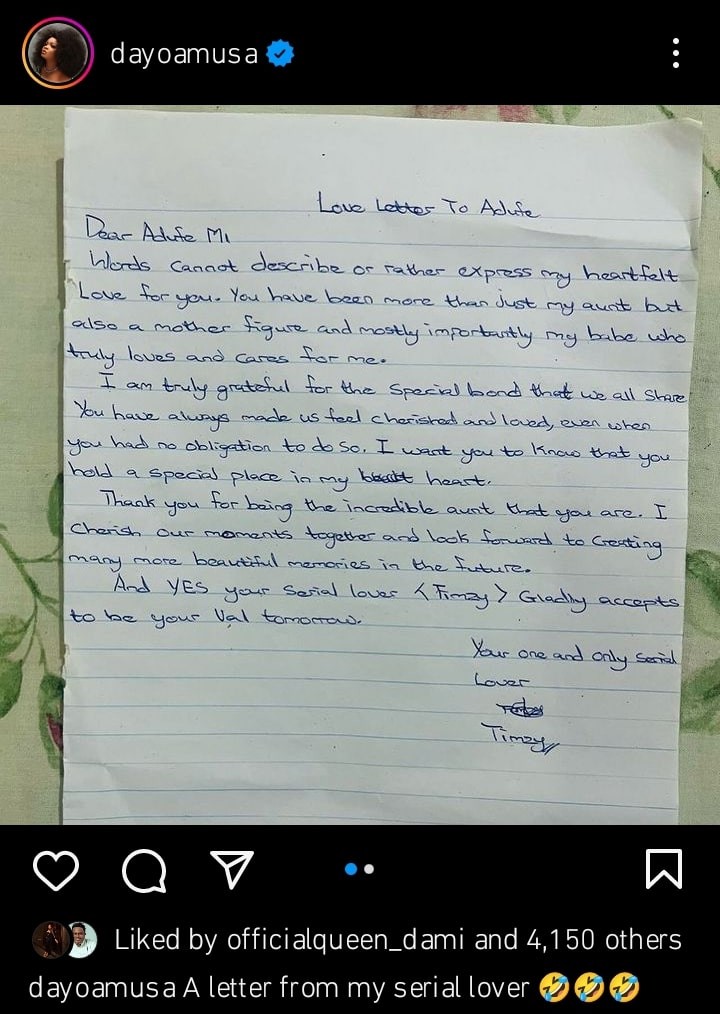 dayoamusa
Love Letter To Adufe
Dear Adufe Mi
Words cannot describe or rather express my heartfelt
Love for you. You have been more than just my aunt but
also a mother figure and mostly importantly my babe who
truly loves and cares for me.
I am truly grateful for the special bond that we all share
You have always made us feel cherished and loved, even when
you had no obligation to do so. I want you to know that you
hold a special place in my heart.
Thank you for being the incredible aunt that you are. I
Cherish our moments together and look forward to Creating
many more beautiful memories in the future.
And YES your Serial lover <Timzy> Gladly accepts
to be your Val tomorrow.
Your one and only Serial
Lover
Timzy
Liked by officialqueen_dami and 4,150 others
dayoamusa A letter from my serial lover 🤣🤣🤣